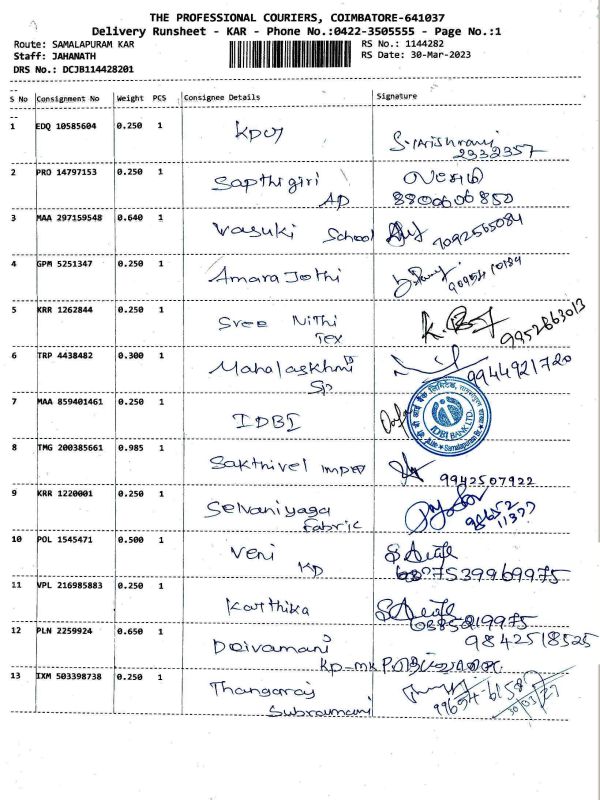 THE PROFESSIONAL COURIERS, COIMBATORE-641037
Delivery Runsheet - KAR - Phone No.:0422-3505555 - Page No.:1
Route: SAMALAPURAM KAR RS No.: 1144282
Staff: JAHANATH RS Date: 30-Mar-2023
DRS No.: DCJB114428201
S No Consignment No Weight PCS Consignee Details Signature
1 EDQ 10585604 0.250 1 KPM
2332357
2 PRO 14797153 0.250 1 Sapthigiri
AP 8800606850
3 MAA 297159548 0.640 1 Vasuki School 7092565084
4 GPM 5251347 0.250 1 Amara Jothi
5 KRR 1262844 0.250 1 Sree Nithi
Tex 9952663013
6 TRP 4438482 0.300 1 Mahalaskhmi
Sp 9944921720
7 MAA 859401461 0.250 1 IDBI IDBI BANK LTD.
8 TMG 200385661 0.985 1 Sakthivel Impex
9942507922
9 KRR 1220001 0.250 1 Selvaniyaga
Fabric 98652
11377
10 POL 1545471 0.500 1 Veni
KP 7539969975
11 VPL 216985883 0.250 1 Karthika
6385219975
12 PLN 2259924 0.650 1 Deivamani 9842518525
Kp-mk
13 IXM 503398738 0.250 1 Thangaraj
Subramani 99654-61587
30/03/27